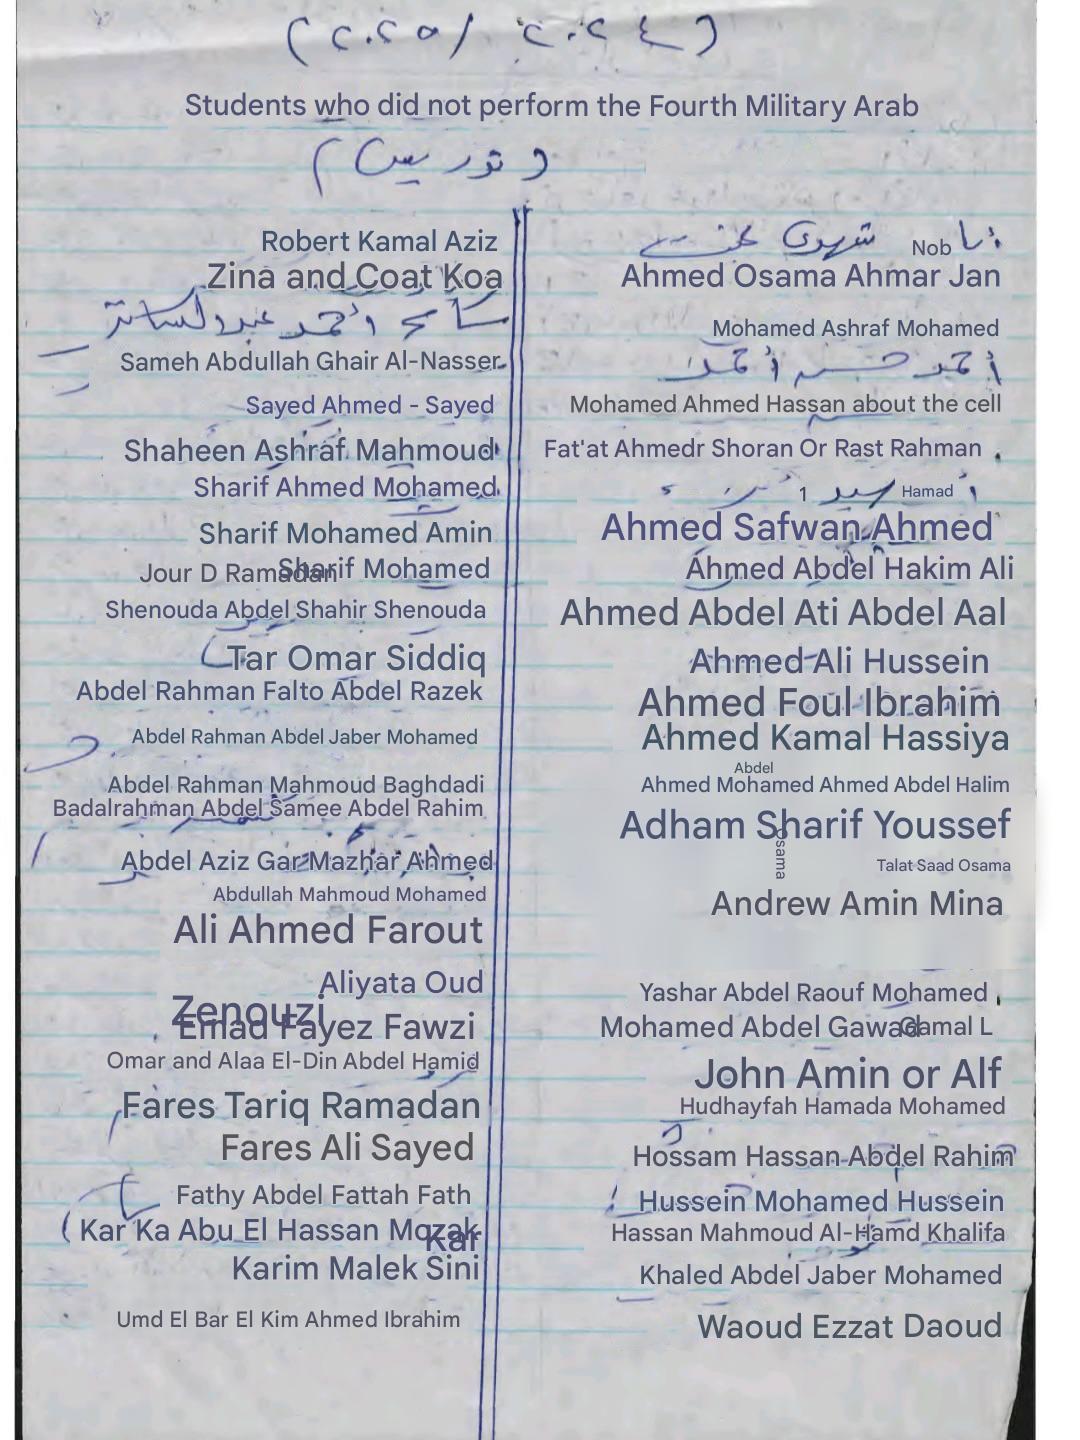 (٢٠٢٤ / ٢٠٢٥)
Students who did not perform the Fourth Military Arab
Nob
Ahmed Osama Ahmar Jan
Mohamed Ashraf Mohamed
أحمد حسن أحمد
Mohamed Ahmed Hassan about the cell
Fat'at Ahmedr Shoran Or Rast Rahman
سيد 1 Hamad
Ahmed Safwan Ahmed
Ahmed Abdel Hakim Ali
Ahmed Abdel Ati Abdel Aal
Ahmed Ali Hussein
Ahmed Foul Ibrahim
Ahmed Kamal Hassiya
Abdel
Ahmed Mohamed Ahmed Abdel Halim
Adham Sharif Youssef
Osama
Talat Saad Osama
Andrew Amin Mina
Yashar Abdel Raouf Mohamed
Mohamed Abdel Gawad Gamal L
John Amin or Alf
Hudhayfah Hamada Mohamed
Hossam Hassan Abdel Rahim
Hussein Mohamed Hussein
Hassan Mahmoud Al-Hamd Khalifa
Khaled Abdel Jaber Mohamed
Waoud Ezzat Daoud
Robert Kamal Aziz
Zina and Coat Koa
سامح أحمد عبدالساتر
Sameh Abdullah Ghair Al-Nasser
Sayed Ahmed - Sayed
Shaheen Ashraf Mahmoud
Sharif Ahmed Mohamed
Sharif Mohamed Amin
Jour D Ramadan Sharif Mohamed
Shenouda Abdel Shahir Shenouda
Tar Omar Siddiq
Abdel Rahman Falto Abdel Razek
Abdel Rahman Abdel Jaber Mohamed
Abdel Rahman Mahmoud Baghdadi
Badalrahman Abdel Samee Abdel Rahim
Abdel Aziz Gar Mazhar Ahmed
Abdullah Mahmoud Mohamed
Ali Ahmed Farout
Aliyata Oud
Zenouzi
Emad Fayez Fawzi
Omar and Alaa El-Din Abdel Hamid
Fares Tariq Ramadan
Fares Ali Sayed
Fathy Abdel Fattah Fath
Kar Ka Abu El Hassan Mozak
Kar
Karim Malek Sini
Umd El Bar El Kim Ahmed Ibrahim